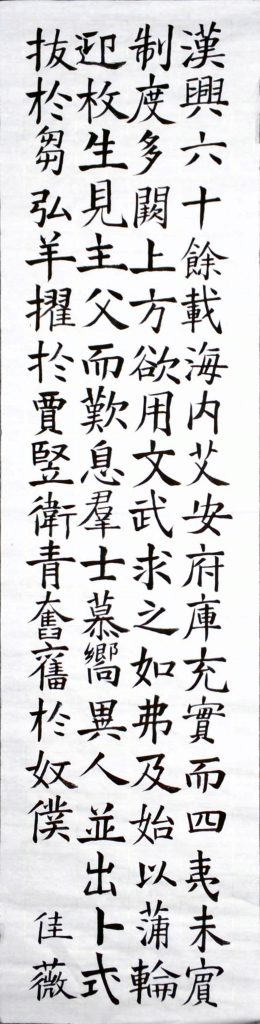 漢興六十餘載海内艾安府庫充實而四夷未賓
制度多闕上方欲用文武求之如弗及始以蒲輪
迎枚生見主父而歎息羣士慕嚮異人並出卜式
拔於芻弘羊擢於賈豎衛青奮於奴僕
佳薇